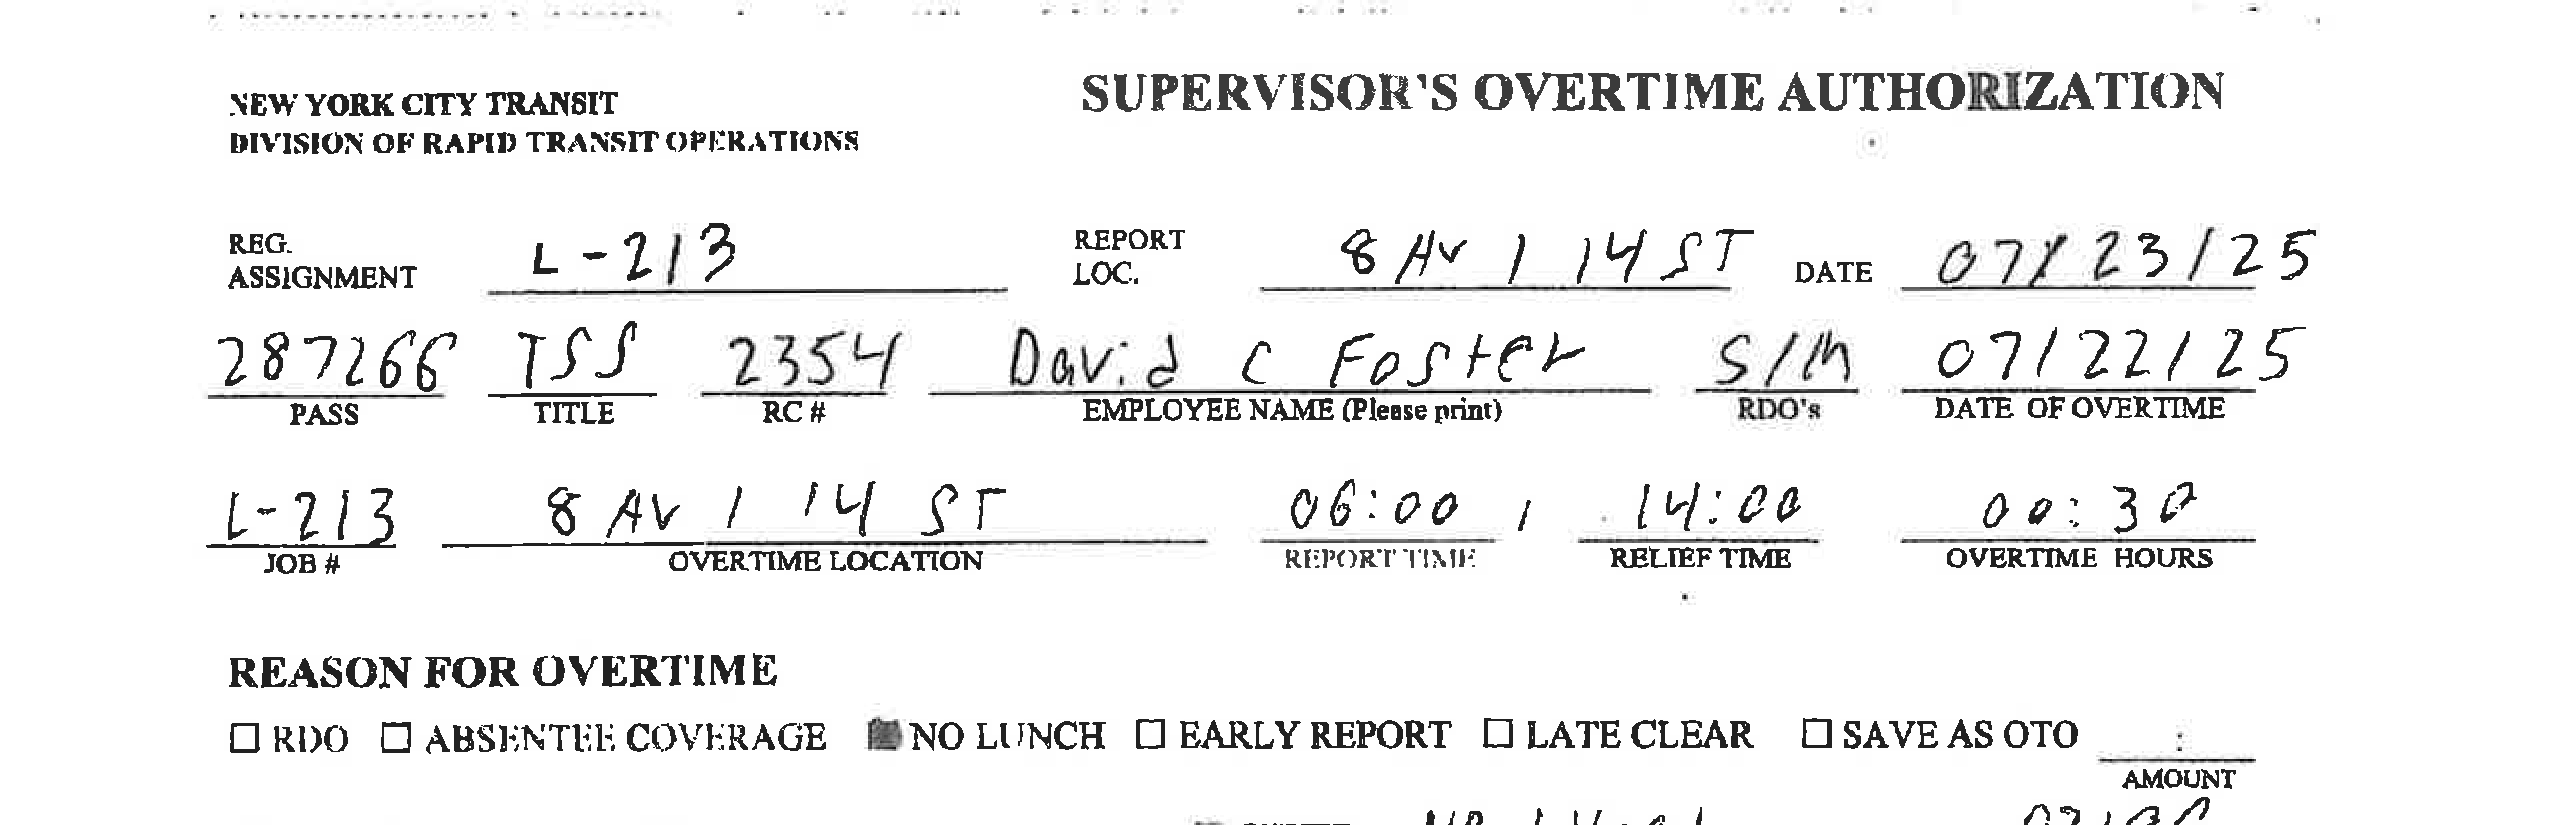 NEW YORK CITY TRANSIT
DIVISION OF RAPID TRANSIT OPERATIONS
SUPERVISOR'S OVERTIME AUTHORIZATION
REG. ASSIGNMENT L-213 REPORT LOC. 8 AV / 14 ST DATE 07/23/25
287266 TSS 2354 David C Foster S/M 07/22/25
PASS TITLE RC # EMPLOYEE NAME (Please print) RDO's DATE OF OVERTIME
L-213 8 AV / 14 ST 06:00 / 14:00 00:30
JOB # OVERTIME LOCATION REPORT TIME RELIEF TIME OVERTIME HOURS
REASON FOR OVERTIME
☐ RDO ☐ ABSENTEE COVERAGE ■ NO LUNCH ☐ EARLY REPORT ☐ LATE CLEAR ☐ SAVE AS OTO :
AMOUNT